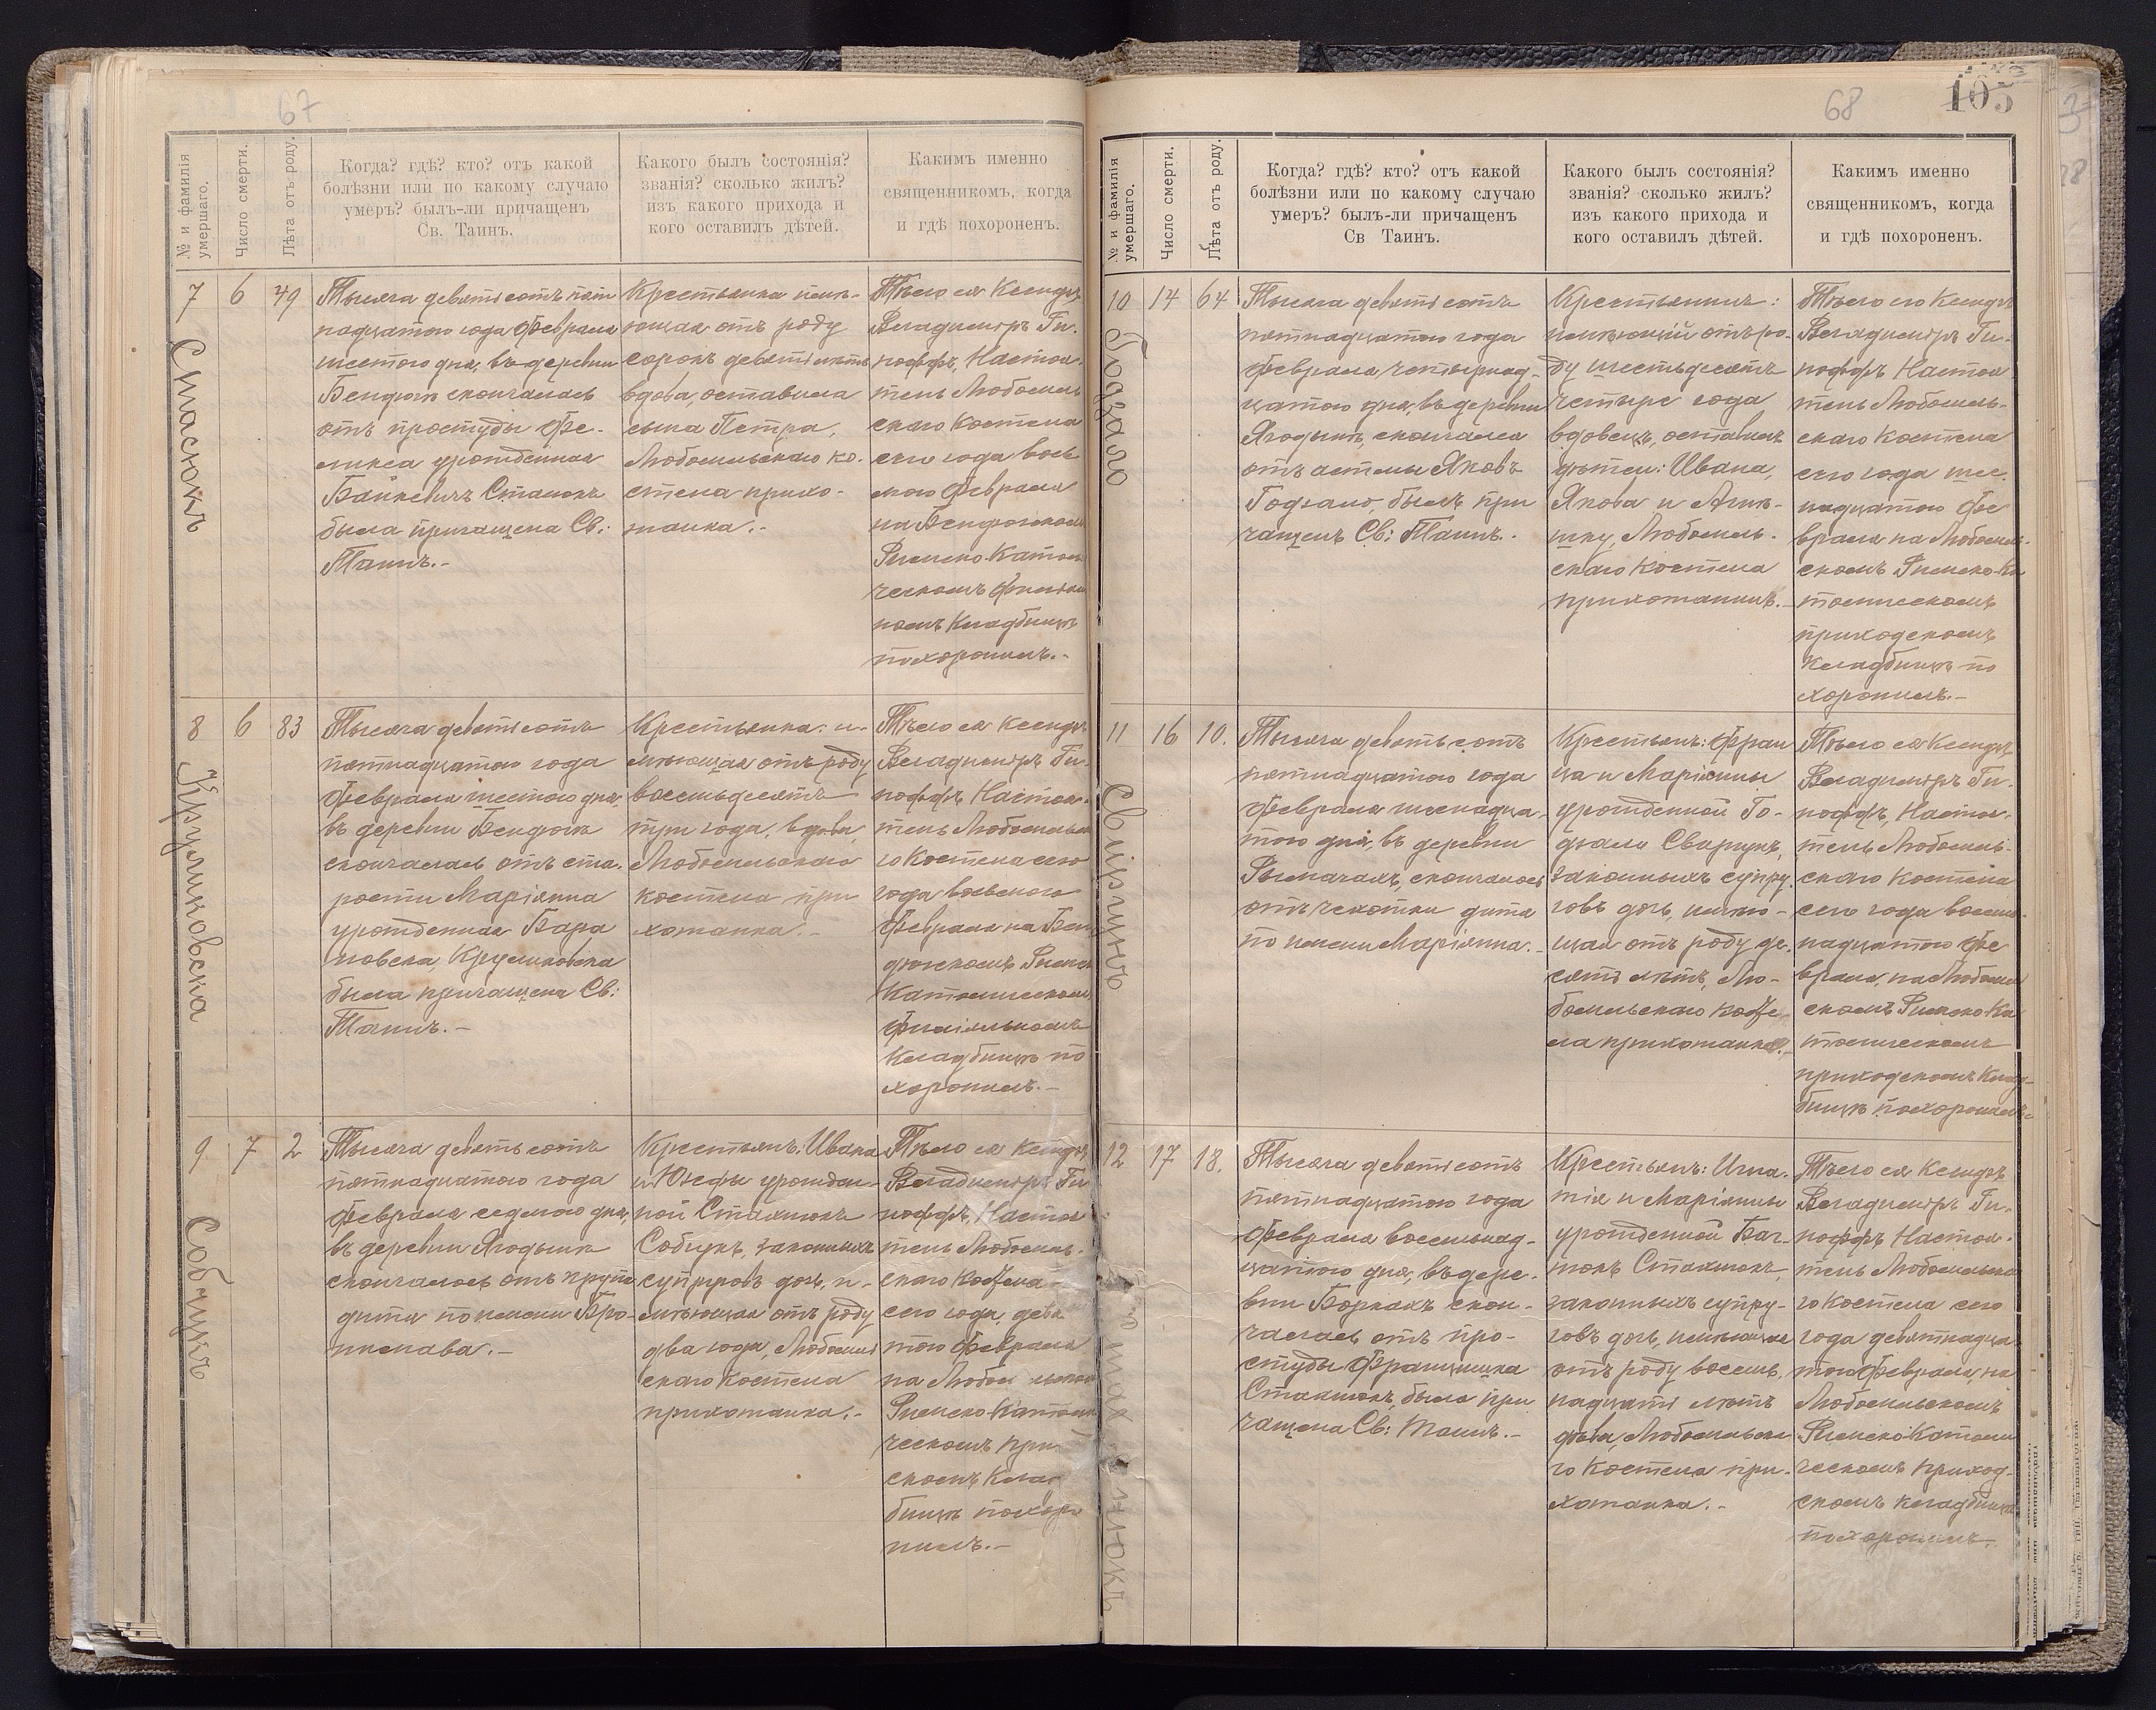 67
№ и фамилія
умершаго.
Число смерти.
Лѣта отъ роду.
Когда? гдѣ? кто? отъ какой
болѣзни или по какому случаю
умеръ? былъ-ли причащенъ
Св. Таинъ.
Какого былъ состоянія?
званія? сколько жилъ?
изъ какого прихода и
кого оставилъ дѣтей.
Какимъ именно
священникомъ, когда
и гдѣ похороненъ.
7
Стасюкъ
6
49
Тысяча девятьсотъ пят
надцатого года Февраля
шестого дня, въ деревни
Бендюгѣ скончалась
отъ простуды Фе-
ликса урожденная
Банкевичъ Стасюкъ
была причащена Св:
Таинъ.-
Крестьянка имѣ-
ющая отъ роду
сорокъ девять лѣтъ
вдова, оставила
сына Петра,
Любомльскаго ко-
стела прихо-
жанка.-
Тѣло ея Ксендзъ
Владиміръ Ги-
ноффъ, Настоя-
тель Любомль
скаго Костела
сего года вось
мого Февраля
на Бендюжскомъ
Римско Католи
ческомъ Филіаль
номъ Кладбищѣ
похоронилъ.-
8
Круликовска
6
83
Тысяча девятьсотъ
пятнадцатого года
Февраля шестого дня,
въ деревни Бендюгѣ
скончалась отъ ста-
рости Маріянна
урожденная Бара
новска, Круликовска
была причащена Св:
Таинъ.-
Крестьянка: и-
мѣющая отъ роду
восемьдесятъ
три года, вдова,
Любомльскаго
костела при
хожанка.-
Тѣло ея Ксендзъ
Владиміръ Ги-
ноффъ, Настоя-
тель Любомльска
го Костела сего
года восьмого
Февраля на Бен
дюжскомъ Римско
Католическомъ
Филіяльномъ
Кладбищѣ по
хоронилъ.-
9
Собчукъ
7
2
Тысяча девятьсотъ
пятнадцатого года
Февраля седмого дня,
въ деревни Ягодынѣ
скончалось отъ крупа
дитя по имени Бро-
нислава.-
Крестьянъ: Ивана
и Юзефы урожден-
ной Стахнюкъ
Собчукъ, законныхъ
супруговъ дочь, и-
мѣющая отъ роду
два года, Любомль
скаго Костела
прихожанка.-
Тѣло ея Ксендзъ
Владиміръ Ги
ноффъ, Настоя
тель Любомль-
скаго Костела
сего года, девя
того Февраля
на Любом льскомъ
Римско Католи
ческомъ при
скомъ Клад
бищѣ похоро
нилъ.-
68
105
№ и фамилія
умершаго.
Число смерти.
Лѣта отъ роду.
Когда? гдѣ? кто? отъ какой
болѣзни или по какому случаю
умеръ? былъ-ли причащенъ
Св Таинъ.
Какого былъ состоянія?
званія? сколько жилъ?
изъ какого прихода и
кого оставилъ дѣтей.
Какимъ именно
священникомъ, когда
и гдѣ похороненъ.
10
Годзало
14
64
Тысяча девятьсотъ
пятнадцатого года
Февраля четырнад-
цатого дня, въ деревни
Ягодынѣ, скончался
отъ астмы Яковъ
Годзало, былъ при
чащенъ Св: Таинъ.-
Крестьянинъ:
имѣющій отъ ро-
ду шестьдесятъ
четыре года
вдовецъ, оставилъ
дѣтей: Ивана,
Якова и Агнѣ-
шку, Любомль-
скаго Костела
прихожанинъ.-
Тѣло его Ксендзъ
Владиміръ Ги-
ноффъ Настоя
тель Любомль-
скаго Костела
сего года шес-
надцатого Фе
враля на Любомль-
скомъ Римско-Ка
толическомъ
приходскомъ
Кладбищѣ по
хоронилъ.-
11
Свіргунъ
16
10.
Тысяча девятьсотъ
пятнадцатого года
Февраля шеснадца-
того дня, въ деревни
Рымачахъ, скончалось
отъ чехотки дитя
по имени Маріянна.-
Крестьянъ: Фран
ца и Маріянны
урожденной Го-
дзало Свиргунъ,
законныхъ супру-
говъ дочь, имѣю-
щая отъ роду де-
сять лѣтъ, Лю-
бомльскаго Косте-
ла прихожанка.-
Тѣло ея Ксендзъ
Владиміръ Ги-
ноффъ, Настоя-
тель Любомль-
скаго Костела
сего года восем-
надцатого Фе
враля, на Любомль
скомъ Римско Ка
толическомъ
приходскомъ Клад-
бищѣ похоронилъ.-
12
17
18.
Тысяча девятьсотъ
пятнадцатого года
Февраля восемнад-
цатого дня, въ дере-
вни Боркахъ скон-
чалась отъ про-
студы Францишка
Стахнюкъ, была при
чащена Св: Таинъ.-
Крестьянъ: Игна-
тія и Маріянны
урожденной Бач-
нюкъ Стахнюкъ,
законныхъ супру-
говъ дочь, имѣющая
отъ роду восем-
надцать лѣтъ
дѣва, Любомльска
го Костела при-
хожанка.-
Тѣло ея Ксендзъ
Владиміръ Ги-
ноффъ Настоя-
тель Любомльска
го Костела сего
года девятнадца
того Февраля, на
Любомльскомъ
Римско Католи
ческомъ приход-
скомъ кладбищѣ
похоронилъ.-